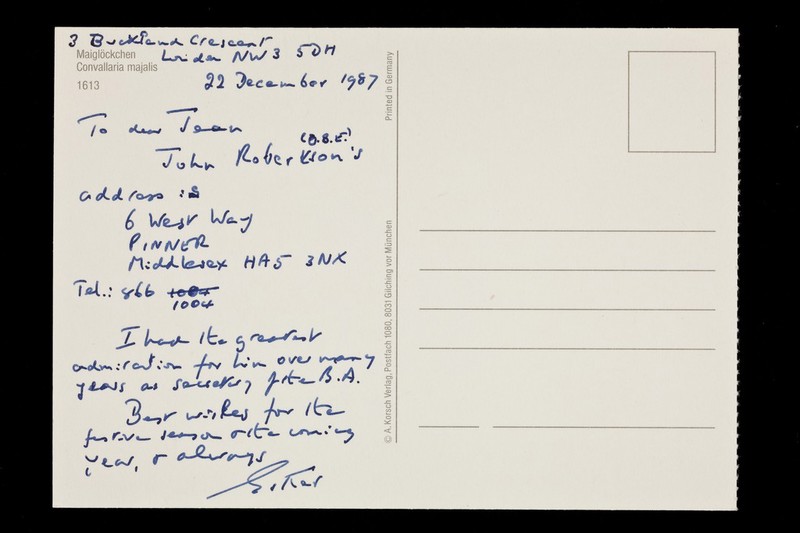 3 Buckland Crescent
London NW3 5DH
22 December 1987
Maiglöckchen
Convallaria majalis
1613
To dear Jean
(O.B.E.)
John Robertson's
address is
6 West Way
PINNER
Middlesex HA5 3NX
Tel.: 866 1004
1004
I had the greatest
admiration for him over many
years as secretary of the B.A.
Best wishes for the
festive season & the coming
year, & always
Esther
Printed in Germany
© A. Korsch Verlag, Postfach 1080, 8031 Gilching vor München